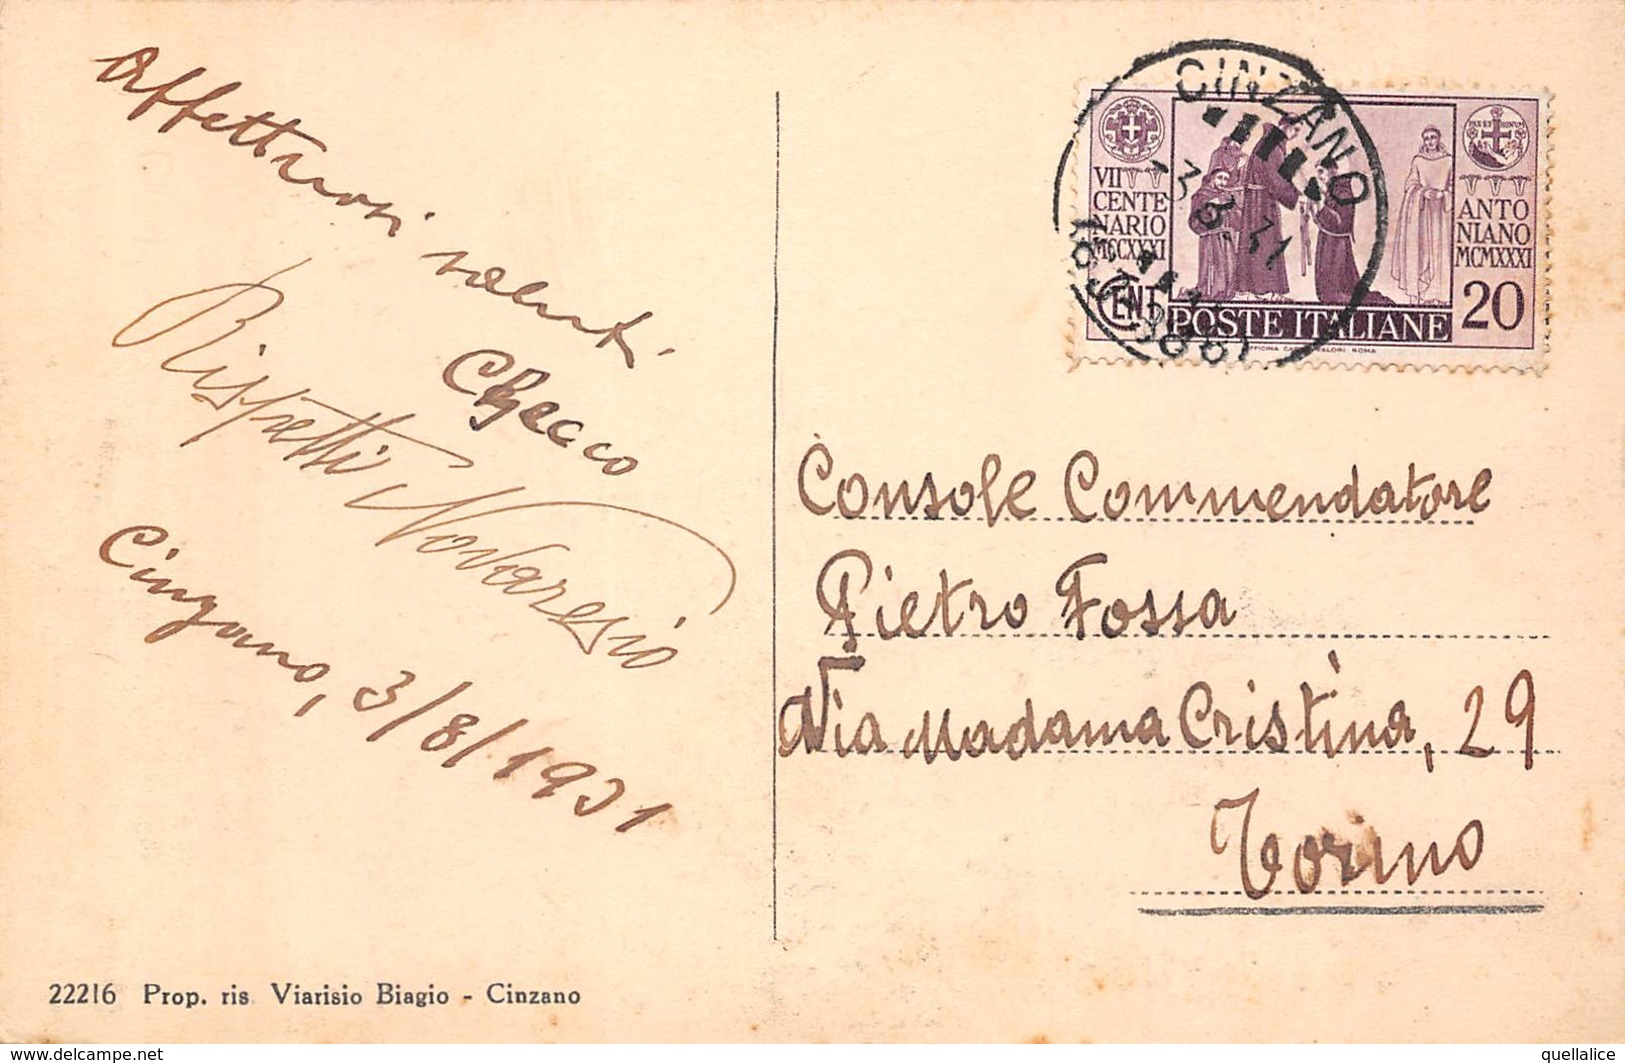 Affettuosi saluti
Checco
Rispetti Novaresio
Cinzano, 3/8/1931
22216 Prop. ris. Viarisio Biagio - Cinzano
CINZANO
-3.8.31
VII
CENTE
NARIO
MCCXXXI
CENT.
POSTE ITALIANE
ANTO
NIANO
MCMXXXI
20
Console Commendatore
Pietro Fossa
Via Madama Cristina, 29
Torino
https://www.delcampe.net
quellalice